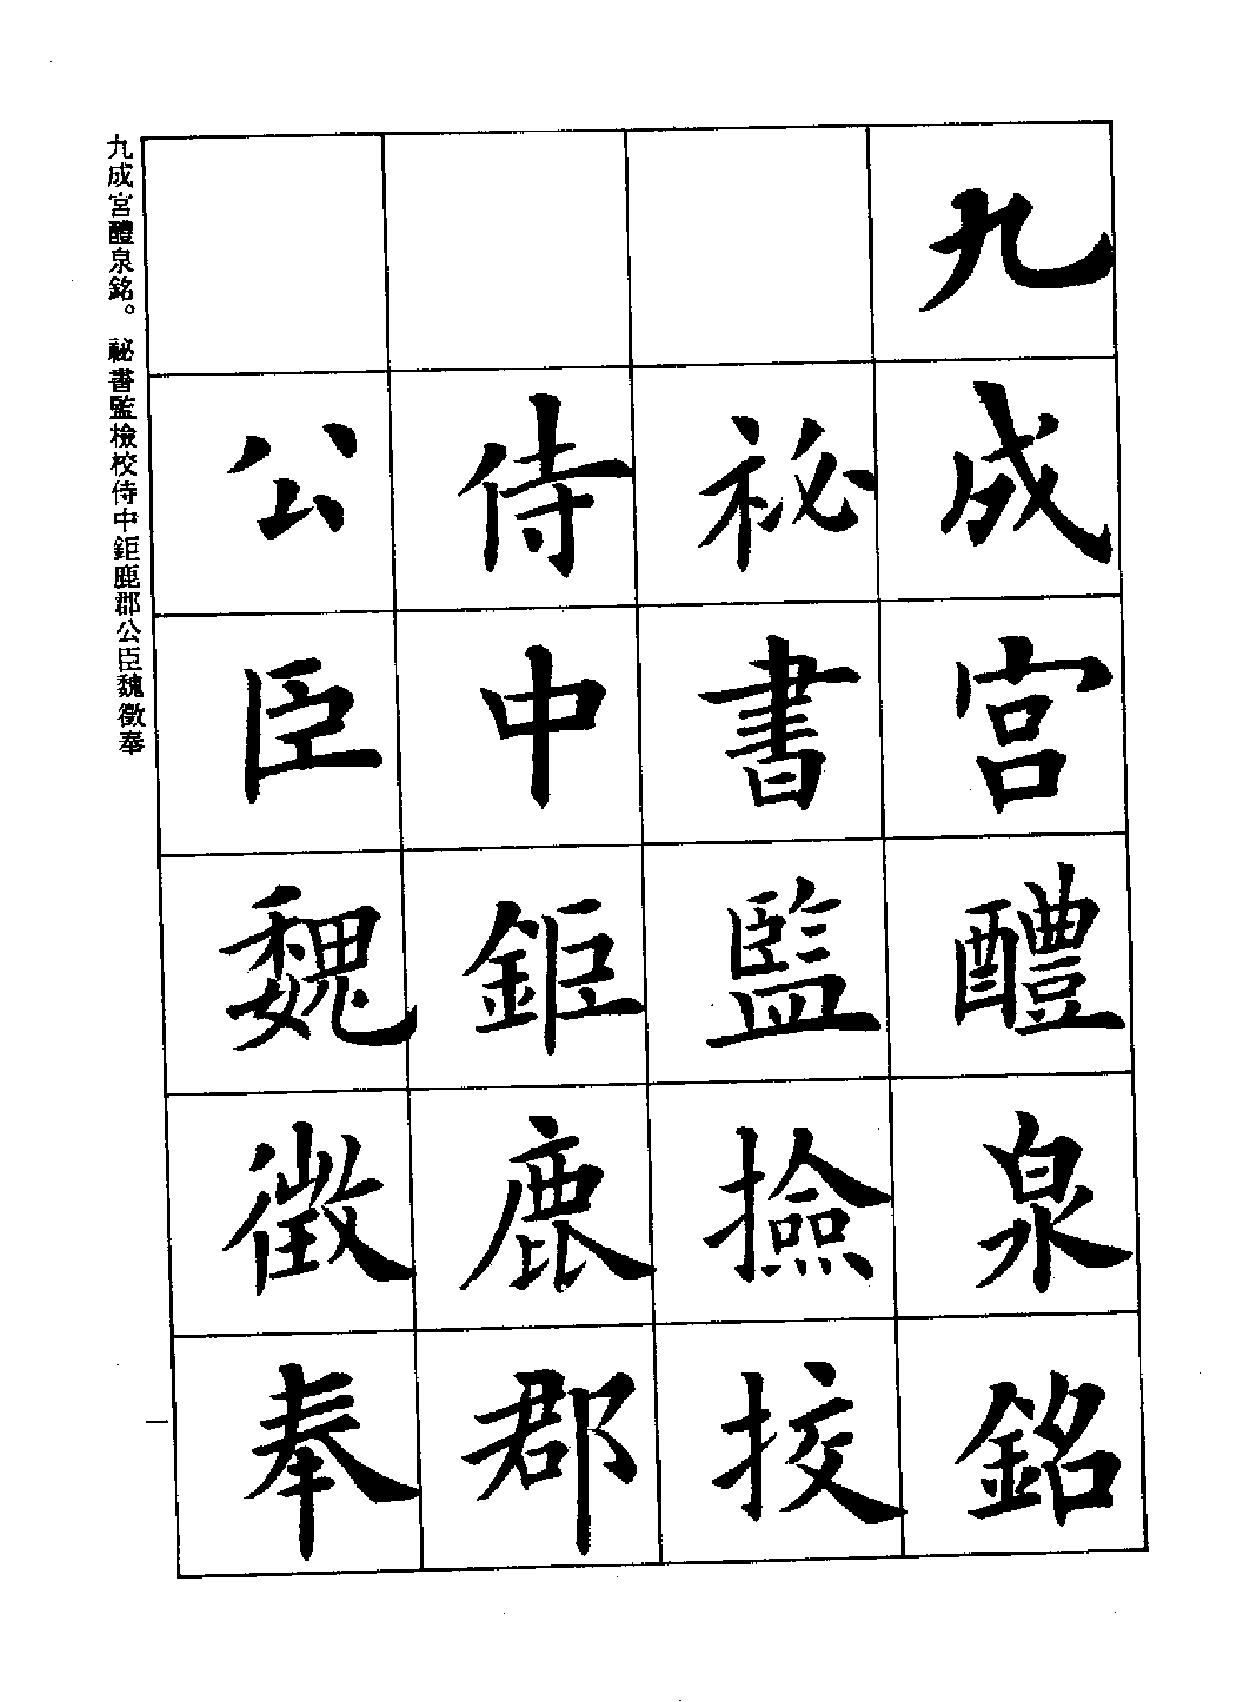 九成宮醴泉銘
祕書監撿挍
侍中鉅鹿郡
公臣魏徵奉
九成宮醴泉銘。祕書監檢校侍中鉅鹿郡公臣魏徵奉
一